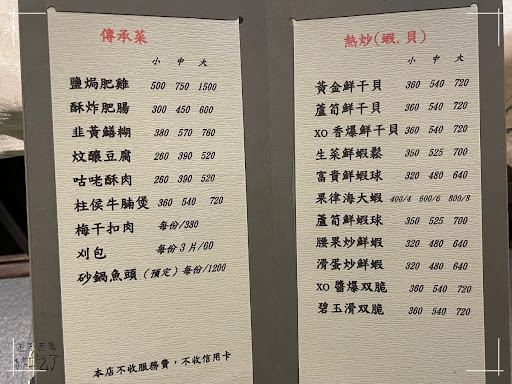 傳承菜
小 中 大
鹽焗肥雞 500 750 1500
酥炸肥腸 300 450 600
韭黃鱔糊 380 570 760
炆釀豆腐 260 390 520
咕咾酥肉 260 390 520
柱侯牛腩煲 360 540 720
梅干扣肉 每份/380
刈包 每份3片/60
砂鍋魚頭(預定)每份/1200
本店不收服務費，不收信用卡
熱炒(蝦,貝)
小 中 大
黃金鮮干貝 360 540 720
蘆筍鮮干貝 360 540 720
XO香爆鮮干貝 360 540 720
生菜鮮蝦鬆 350 525 700
富貴鮮蝦球 320 480 640
果律海大蝦 400/4 600/6 800/8
蘆筍鮮蝦球 350 525 700
腰果炒鮮蝦 320 480 640
滑蛋炒鮮蝦 320 480 640
XO醬爆双脆 360 540 720
碧玉滑双脆 360 540 720